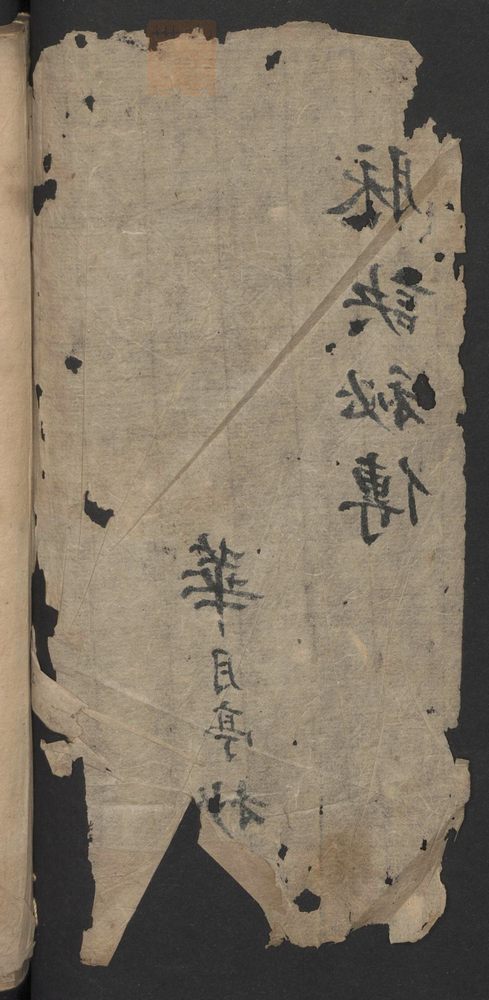 脉訣秘傳
華月亭抄